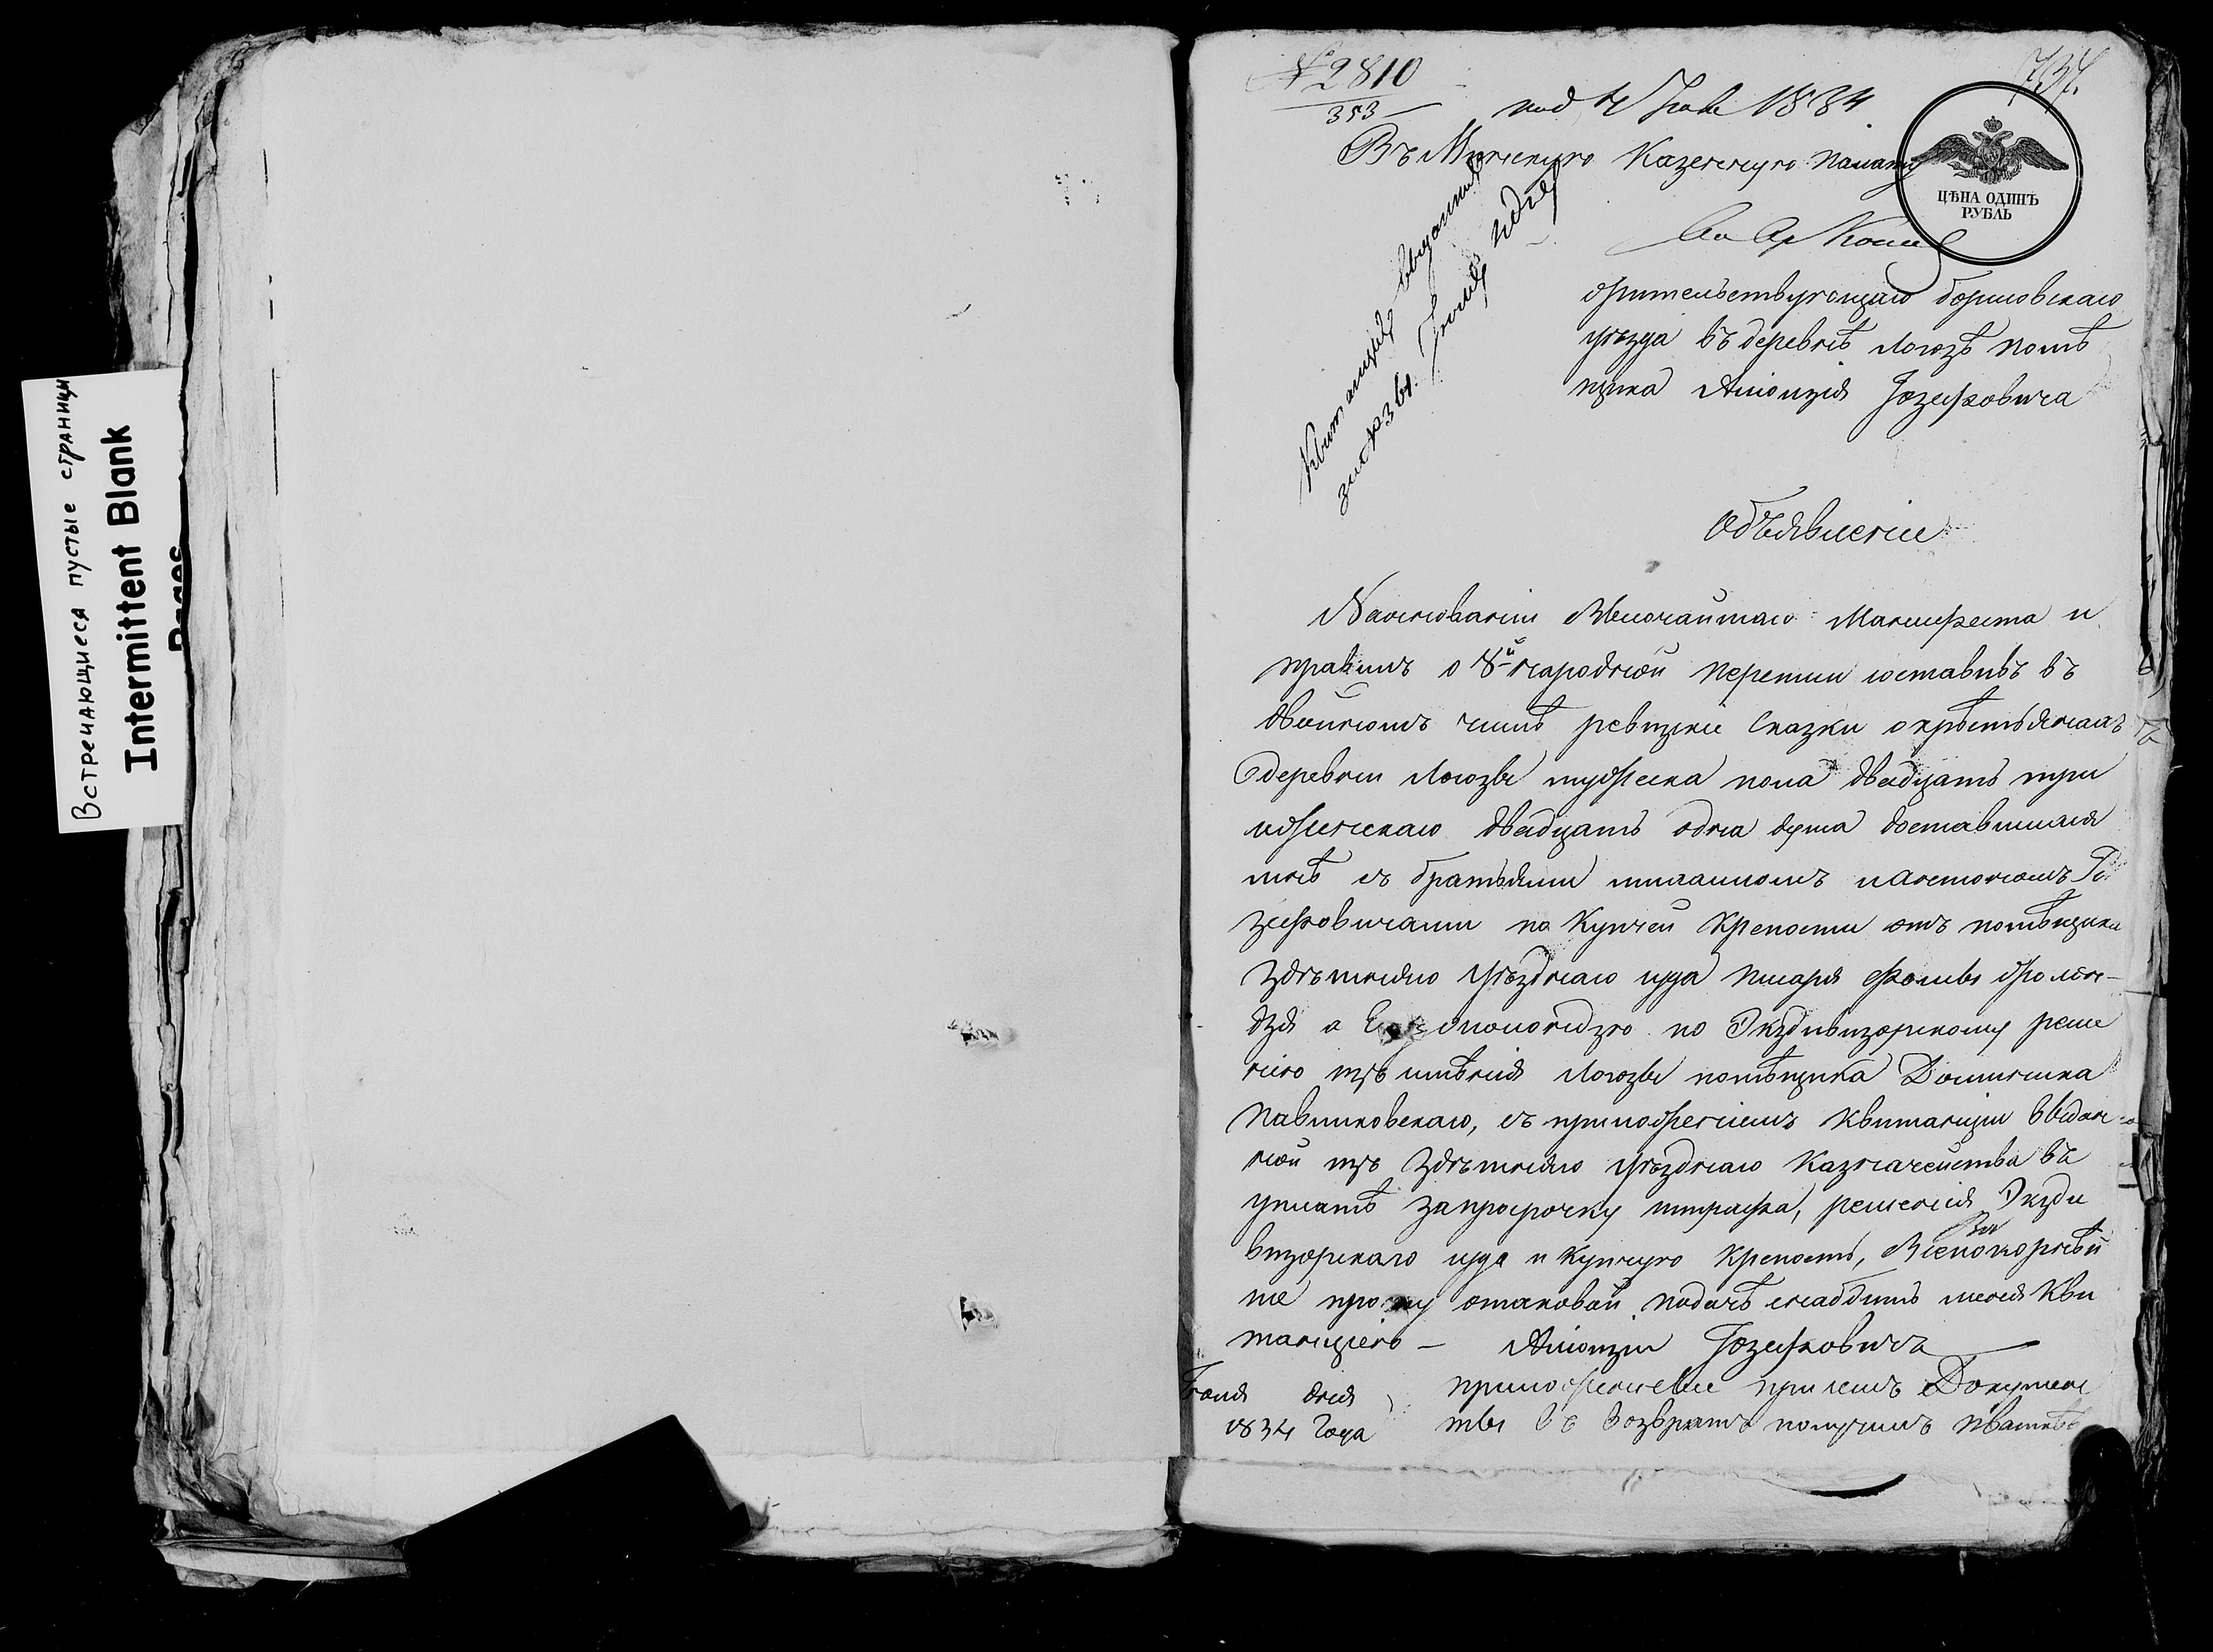 Встречающиеся пустые страницы
Intermittent Blank
Pages
№ 2810
353
734.
под 4 Июня 1834
ЦѢНА ОДИНЪ
РУБЛЬ
Въ Минскую Казенную палату
жительствующаго борисовскаго
уѣзда въ деревнѣ Логозѣ помѣ
щика Алоизія Іозефовича
Квитанцію
Объявленіе
Наоснованіи Высочайшаго Манифеста и
правилъ о 8й народной переписи составивъ въ
двойномъ числѣ ревизкіе сказки окрѣстьянахъ
деревни Логозы мужеска пола двадцать три
иженскаго двадцать одна душа доставшихся
мнѣ съ братьями и Антономъ Іо
зефовичами по Купчей Крепости отъ помѣщика
Здѣшняго Уѣзднаго суда писаря Фомы
дзя а по Экздивизорскому реше
нію изъ имѣнія Логозы помѣщика Доминика
Павликовскаго, съ приложеніемъ квитанціи выдан
ной изъ Здѣшняго Уѣзднаго Казначейства въ
уплатѣ запросрочку штрафа, решенія Экзди
визорскаго суда и купчую Крепость, Всепокорнѣй
ше прошу отаковой подачѣ снабдить меня Кви
танціею — Алоизій Іозефовичъ
Іюня дня приложенные при семъ Докумен
1834 Года ты въ возвратъ получилъ